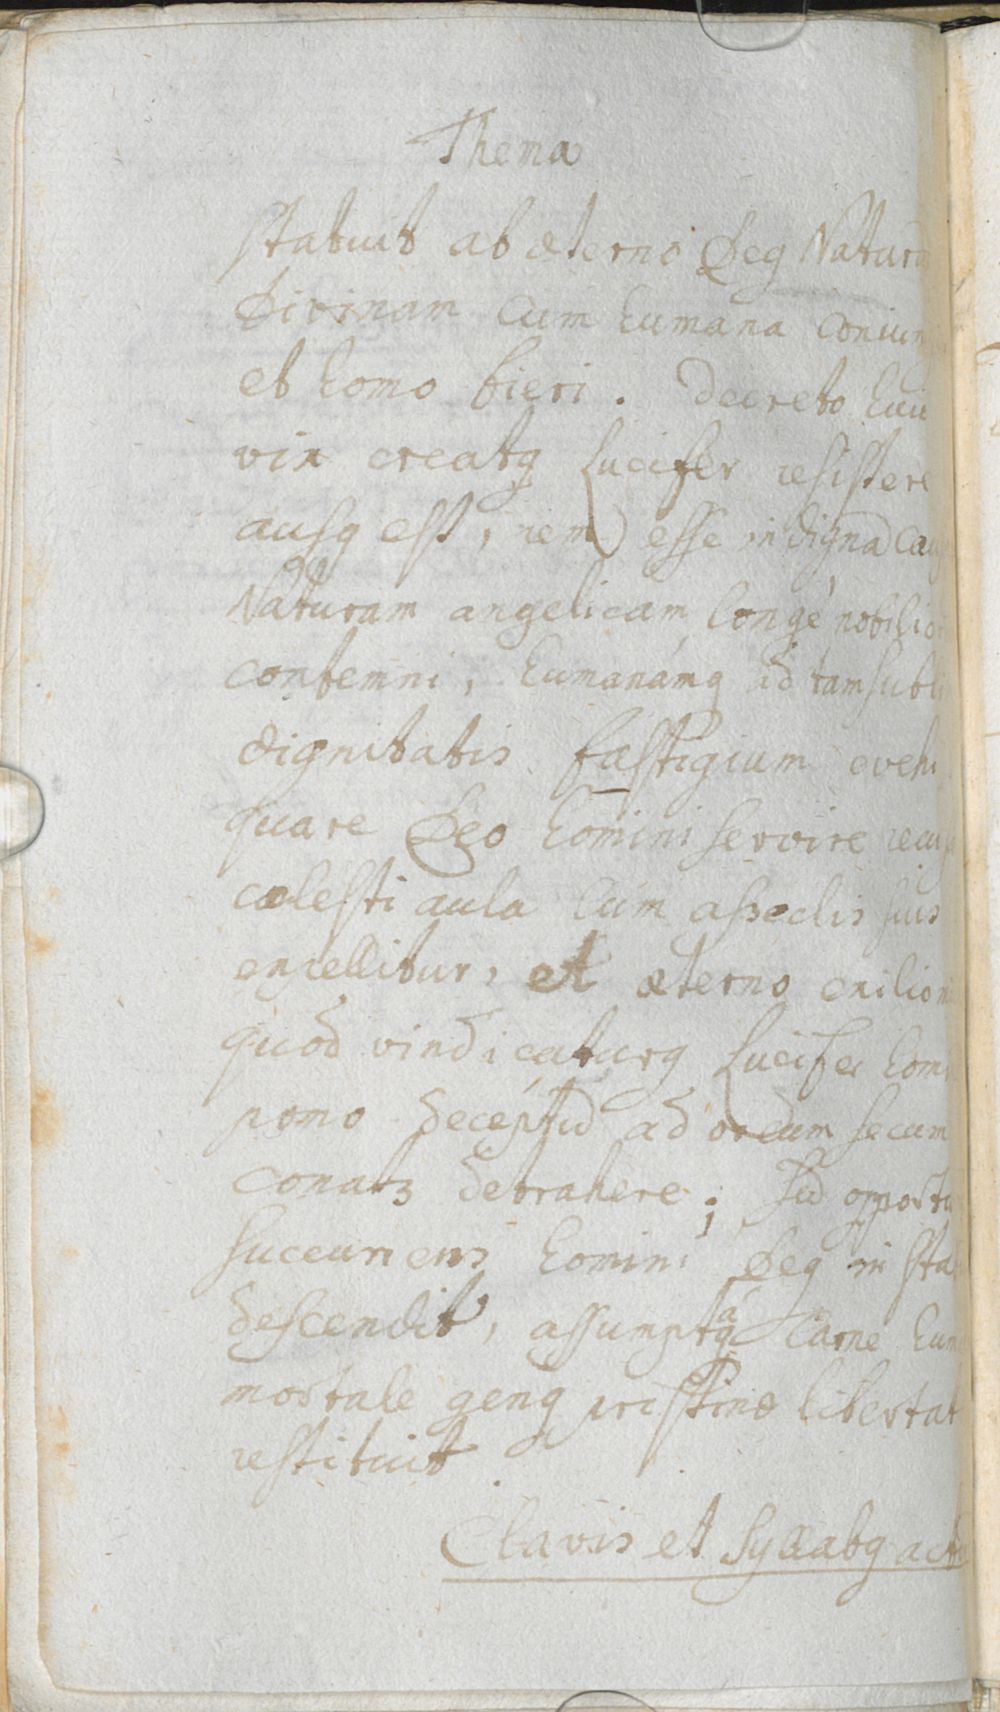 Thema
Statuit ab æterno Deꝰ Natura
Divinam cum humana coniun
et homo fieri. Decreto huic
vix creatꝰ Lucifer resistere
ausꝰ est, rem esse indignā cau
Naturam angelicam longé nobilior
contemni, humanámq ad tam subli
dignitatis fastigium evehi
quare Deo homini servire recus
cælesti aula cum asseclis suis
expellitur, et æterno exilio m
quod vindicaturꝰ Lucifer homi
pomo deceptū ad orcum secum
conatꝫ detrahere; sed opportu
succurrens homini Deꝰ in sta
descendit, assumptá carne hum
mortale genꝰ pristinæ libertat
restituit.
Clavis et Syllabꝰ act